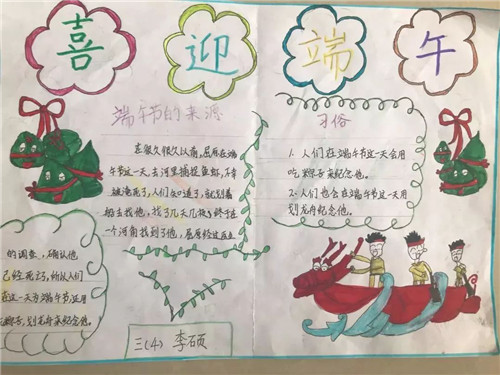 喜迎端午
端午节的来源
在很久很久以前,屈原在端
午节这一天,去河里捕捉鱼虾,不幸
被淹死了,人们知道了,就划着
船去找他,找了几天几夜,终于在
一个河南找到了他,屈原经过
的调查,确认他
已经死亡,所以人们
在这一天为端午节,运用
吃粽子,划龙舟来纪念他。
习俗
1、人们在端午节这一天会用
吃粽子来纪念他。
2、人们也会在端午节这一天用
划龙舟纪念他。
三(4) 李硕